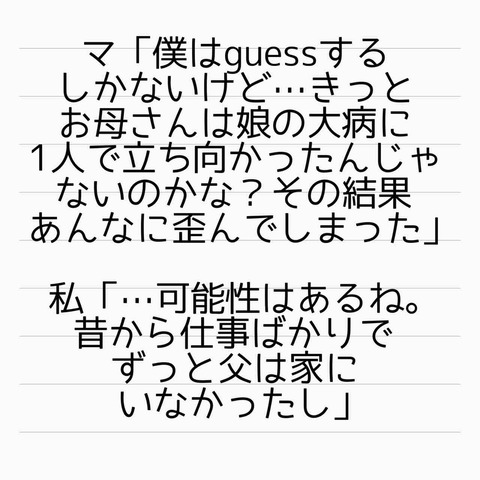 マ「僕はguessする
しかないけど…きっと
お母さんは娘の大病に
1人で立ち向かったんじゃ
ないのかな？その結果
あんなに歪んでしまった」
私「…可能性はあるね。
昔から仕事ばかりで
ずっと父は家に
いなかったし」